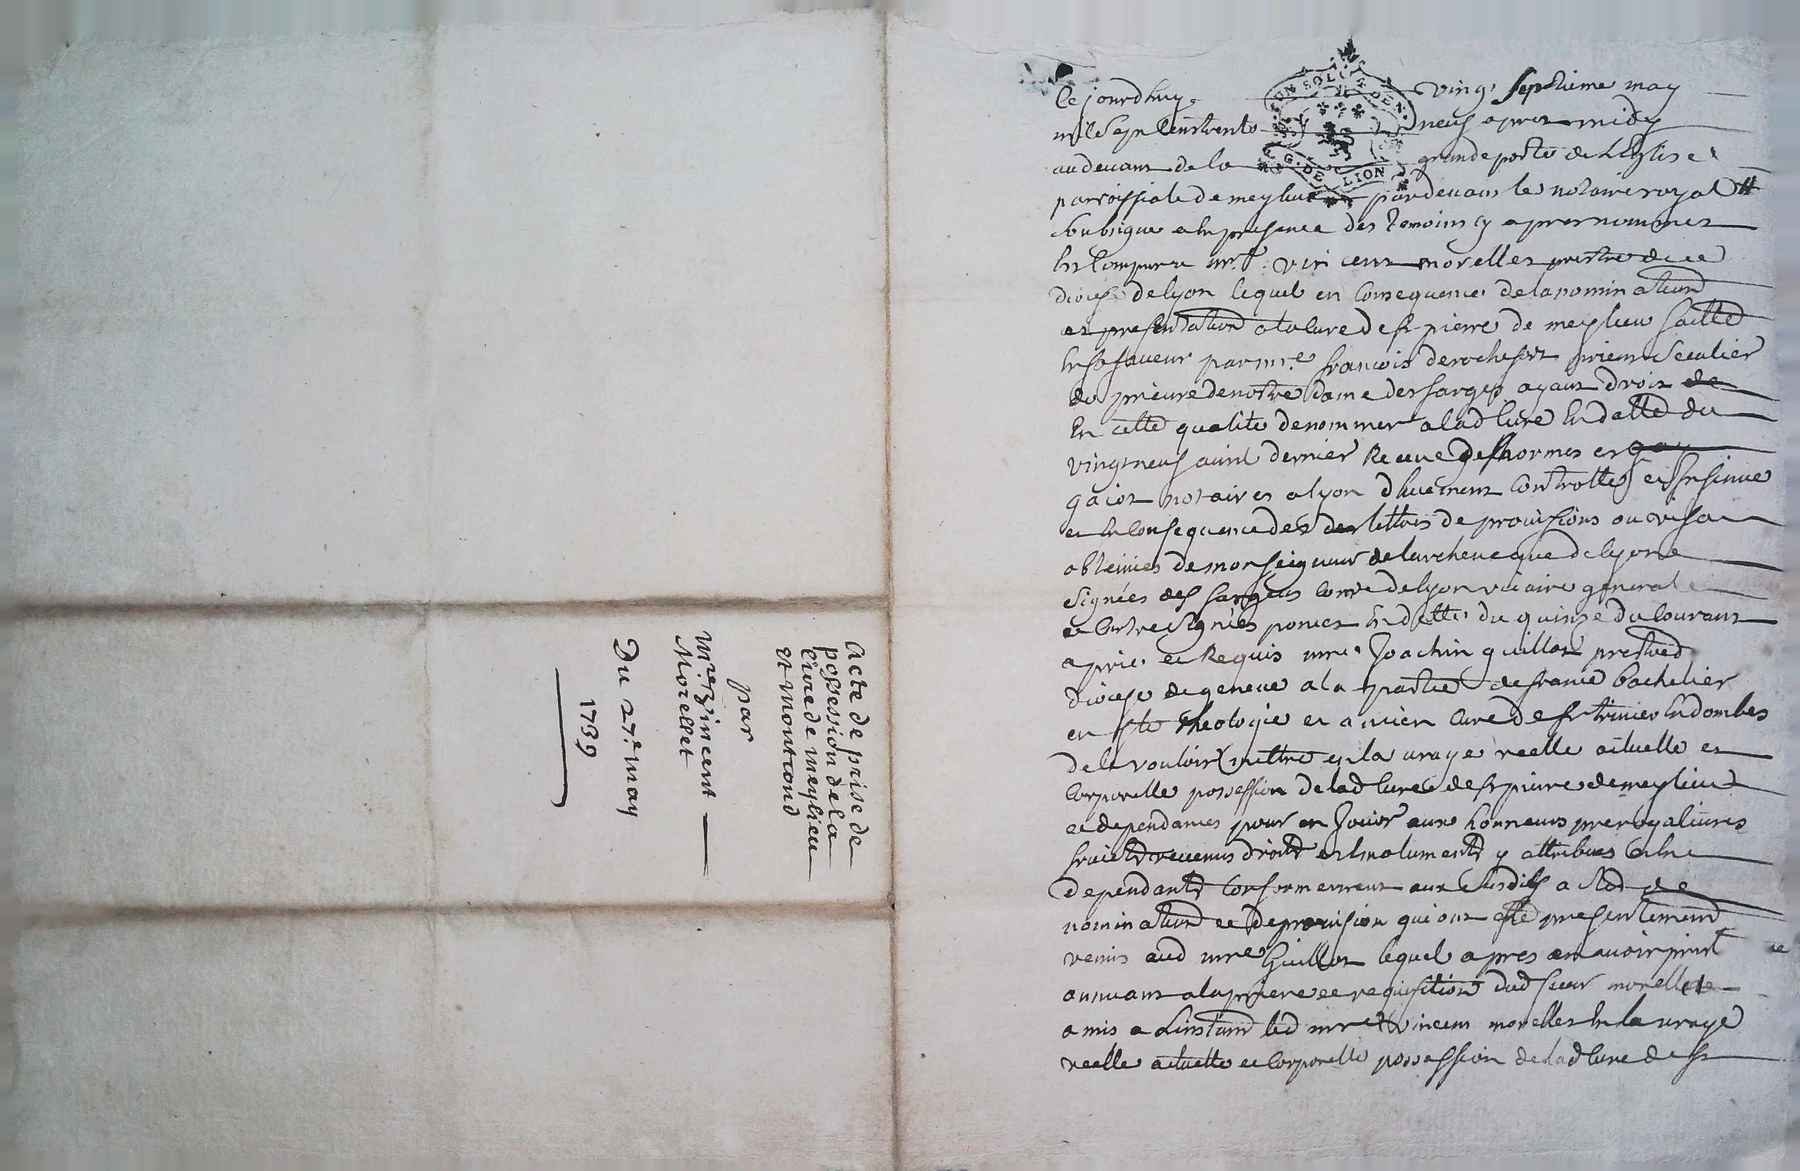 Acte de prise de
possession de la
Cure de meylieu
et Montrond
par
Mre Vincent
Morellet
Du 27e may
1739
UN SOL 4 DEN
G. DE LION
Cejourdhuy vingt septieme may
mil sept cent trente neuf apres midy
audevant de la grande porte de Leglise
parroissiale de meylieu pardevant le notaire royal
soubsigne et en presence des temoins cy apres nommes
Est comparu mre vincent morellet prestre de ce
diocese de lyon lequel en consequence de la nomination
et presentation a la cure de st pierre de meylieu faitte
en sa faveur par mre francois de rochefort prieur seculier
du prieure de nostre dame de sarges ayant droit de
En cette qualite de nommer a lad cure En datte du
vingt neuf avril dernier Receue Deshormes et
gajot notaires a lyon dhuement Controlle et Insinue
et en Consequence des lettres de provisions ou visa
obtenues de monseigneur de larcheveque de lyon
signées des sarges Comte de lyon vicaire general
et Contresignées poncet En datte du quinze du Courant
a prie et Requis mre Joachin guillot prestre
diocese de geneve a la partie de france bachelier
en ste theologie et ancien cure de st trivier En dombes
de le vouloir mettre en la vraye reelle actuelle et
Corporelle possession de lad Cure de st pierre de meylieu
et dependances pour en Jouir aux honneurs prerogatives
fruits revenus droits et Emoluments y attribues et en
dependants Conformement aux susdits actes de
nomination et de provision qui ont este presentement
remis aud mre Guillot lequel apres en avoir pris
annuant a la priere et requisition dud sieur morellet
a mis a Linstant led mre vincent morellet En la vraye
reelle actuelle et Corporelle possession de lad Cure de st